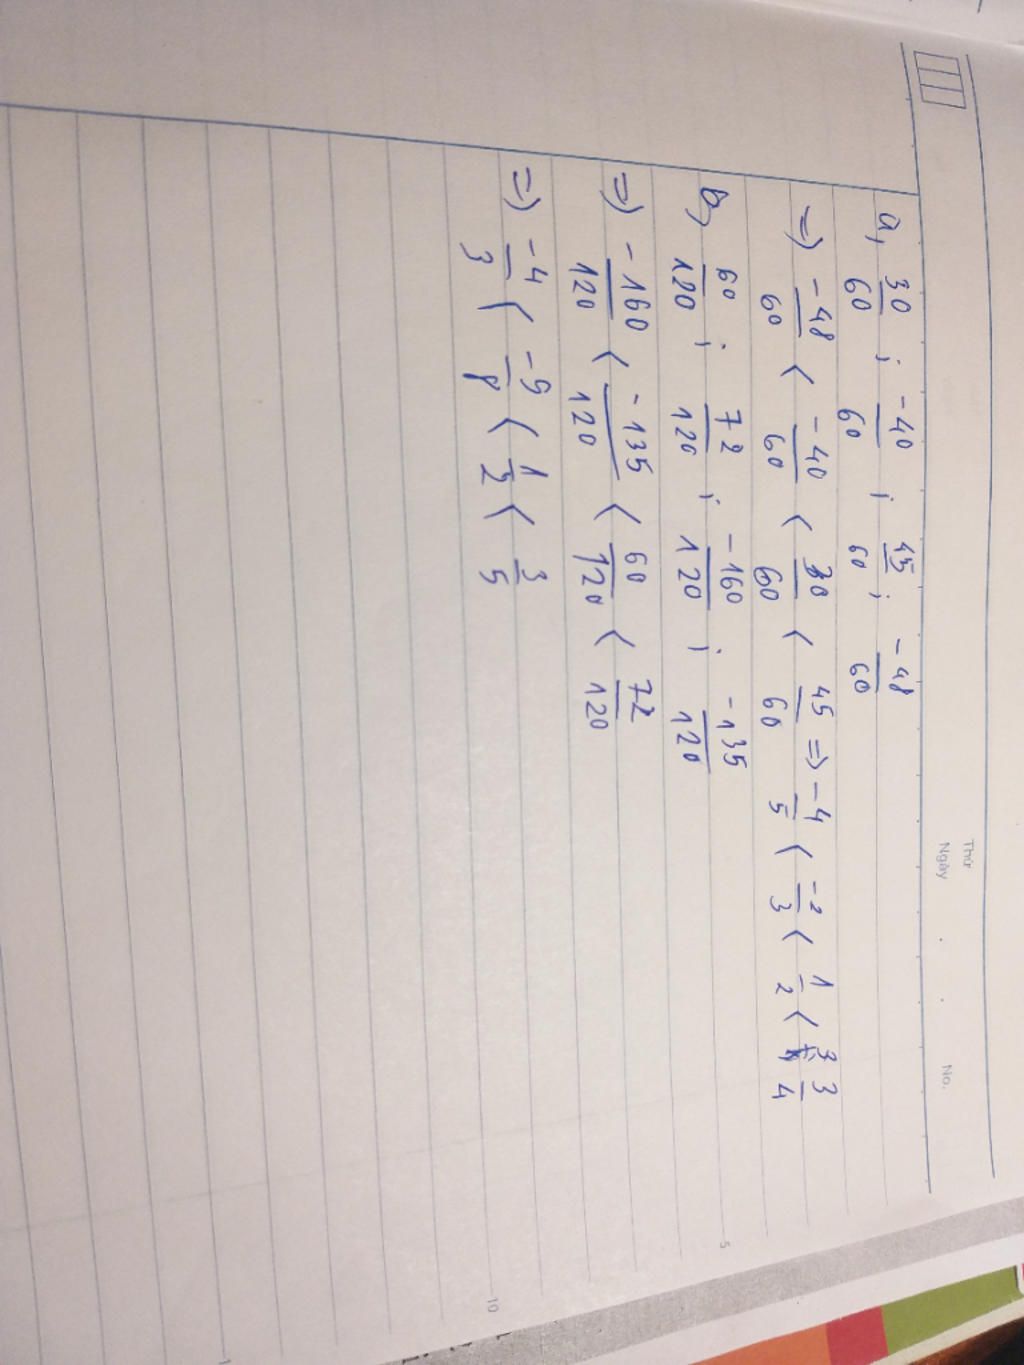 Thứ
Ngày . . No.
a, 30/60 ; -40/60 ; 45/60 ; -48/60
=) -48/60 < -40/60 < 30/60 < 45/60 =) -4/5 < -2/3 < 1/2 < 3/4
5
b, 60/120 ; 72/120 ; -160/120 ; -135/120
=) -160/120 < -135/120 < 60/120 < 72/120
=) -4/3 < -9/8 < 1/2 < 3/5
10